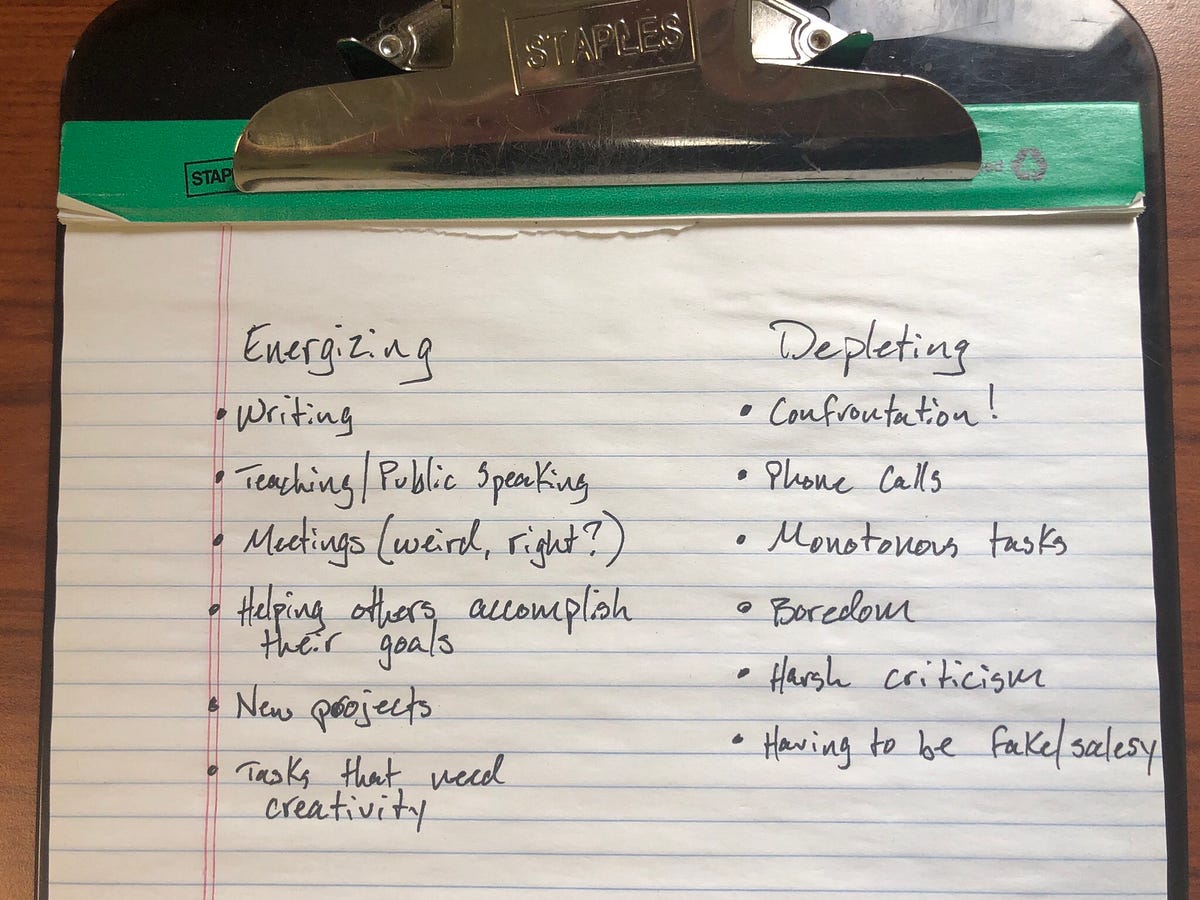 STAPLES
STAP
Energizing
• Writing
• Teaching/Public Speaking
• Meetings (weird, right?)
• Helping others accomplish
their goals
• New projects
• Tasks that need
creativity
Depleting
• Confrontation!
• Phone Calls
• Monotonous tasks
• Boredom
• Harsh criticism
• Having to be fake/salesy